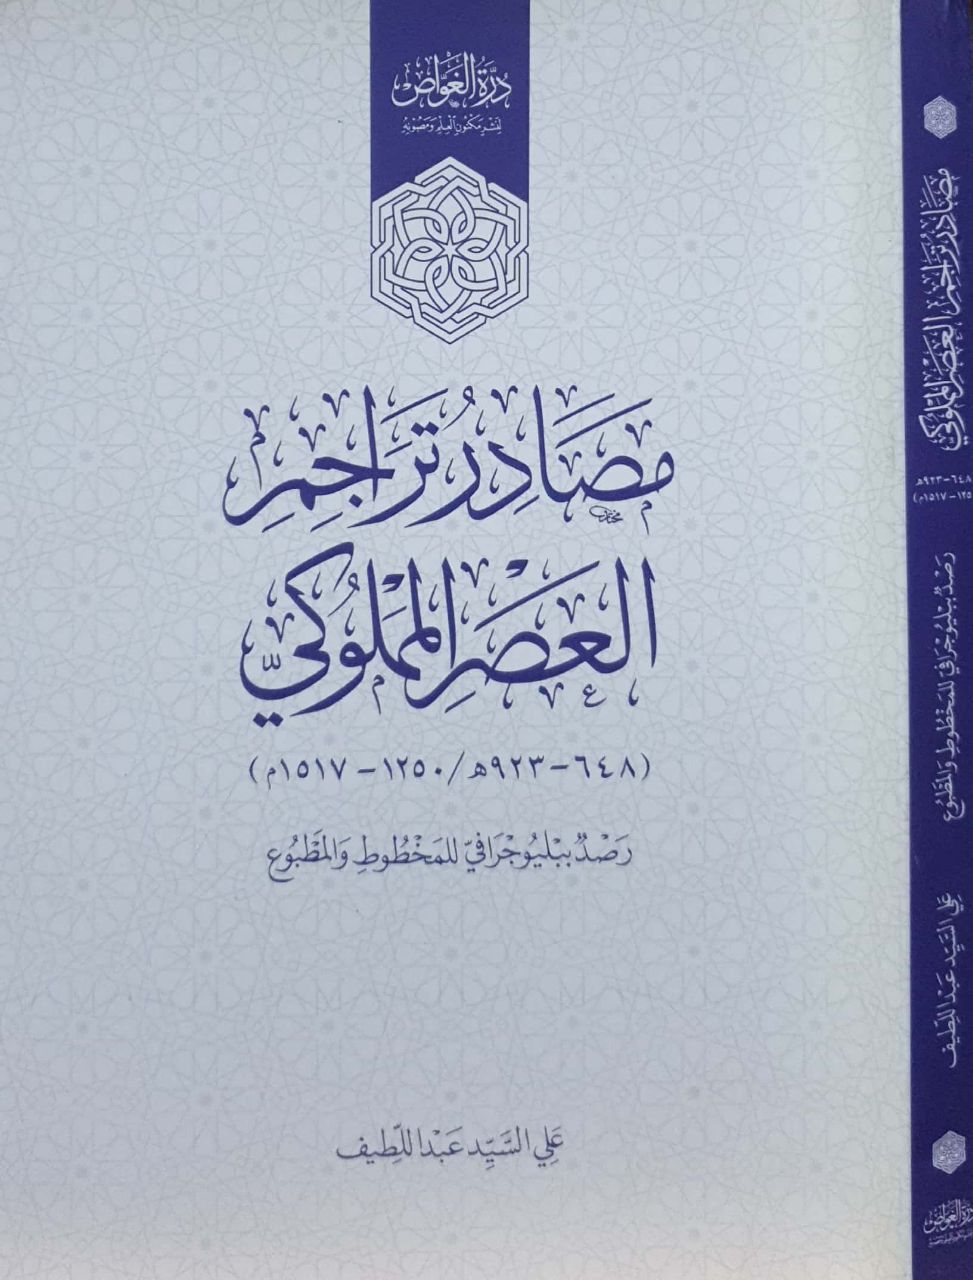 دُرَّةُ الغَوَّاص
لِنَشْرِ مَكْنُونِ العِلْمِ وَمَصُونِهِ
مَصَادِرُ تَرَاجِمِ
العَصْرِ المَمْلُوكِيِّ
(٦٤٨-٩٢٣هـ/١٢٥٠-١٥١٧م)
رَصْدٌ ببْليُوجْرَافيّ للمَخْطُوطِ وَالمَطْبُوع
عَلِي السَّيِّد عَبْد اللَّطِيف
مَصَادِرُ تَرَاجِمِ العَصْرِ المَمْلُوكِيِّ
٦٤٨-٩٢٣هـ
١٢٥٠-١٥١٧م)
رَصْدٌ ببْليُوجْرَافيّ للمَخْطُوطِ وَالمَطْبُوع
عَلِي السَّيِّد عَبْد اللَّطِيف
دُرَّةُ الغَوَّاص